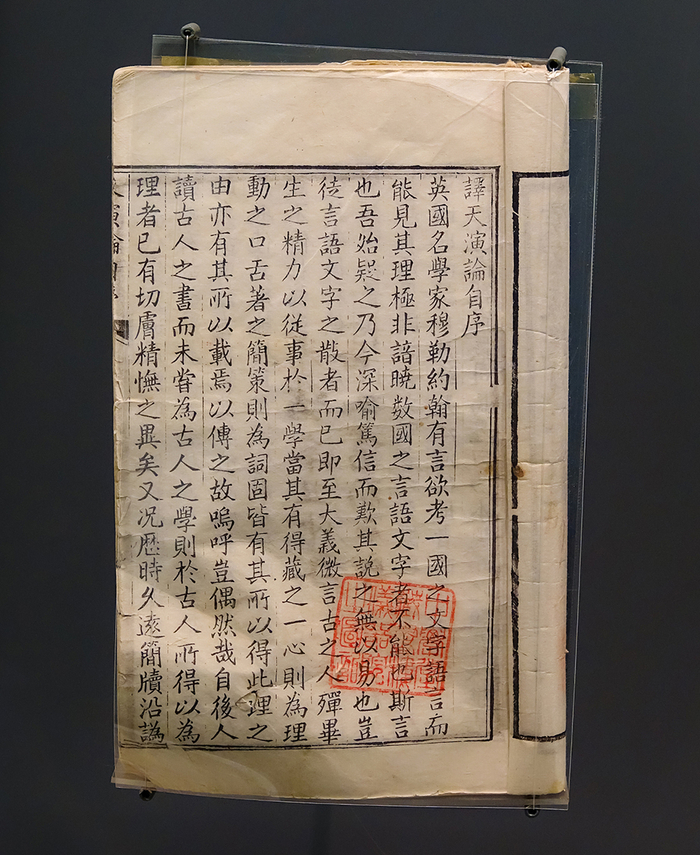 譯天演論自序
英國名學家穆勒約翰有言欲考一國之文字語言而
能見其理極非諳曉數國之言語文字者不能也斯言
也吾始疑之乃今深喻篤信而歎其説之無以易也豈
徒言語文字之散者而已即至大義微言古之人殫畢
生之精力以從事於一學當其有得藏之一心則為理
動之口舌著之簡策則為詞固皆有其所以得此理之
由亦有其所以載焉以傳之故嗚呼豈偶然哉自後人
讀古人之書而未嘗為古人之學則於古人所得以為
理者已有切膚精憮之異矣又况歴時久遠簡牘沿譌